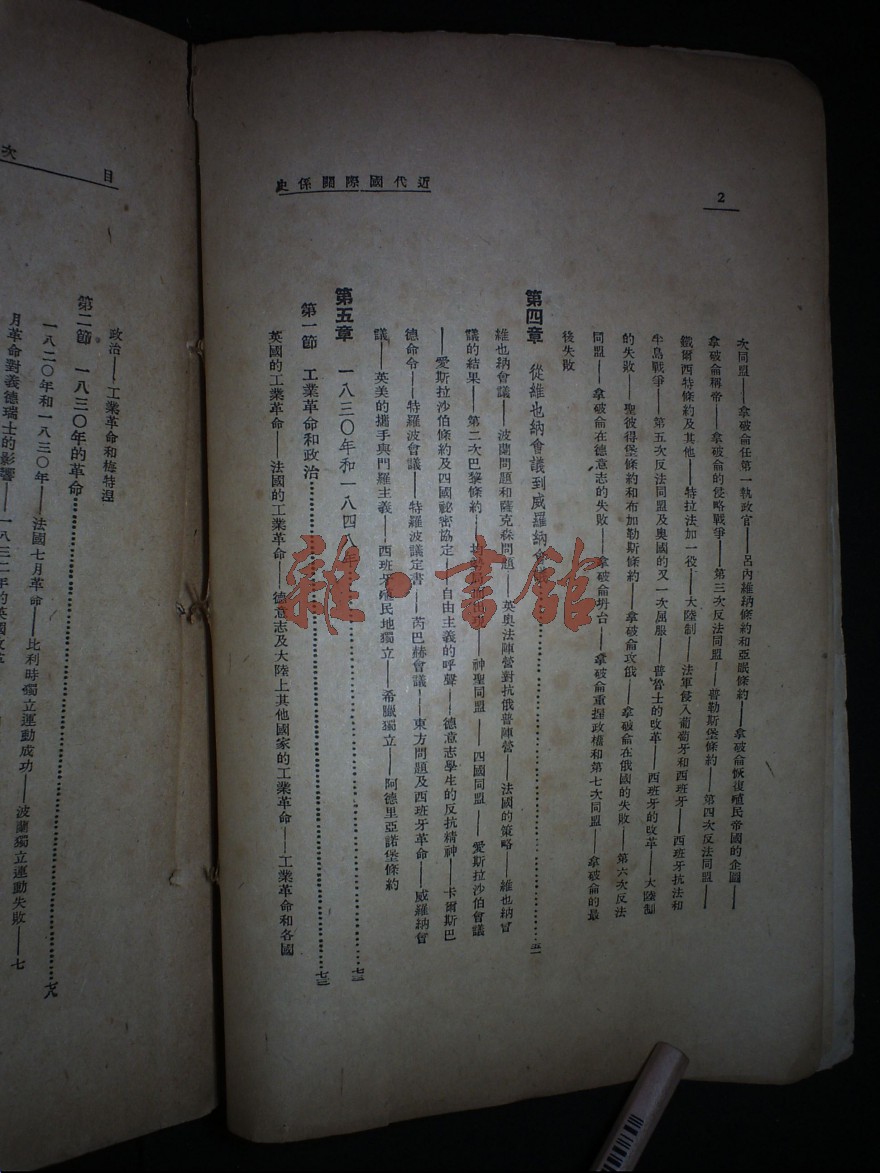 2
近代國際關係史
次同盟——拿破侖任第一執政官——呂內維納條約和亞眠條約——拿破侖恢復殖民帝國的企圖——
拿破侖稱帝——拿破侖的侵略戰爭——第三次反法同盟——普勒斯堡條約——第四次反法同盟——
鐵爾西特條約及其他——特拉法加一役——大陸制——法軍侵入葡萄牙和西班牙——西班牙抗法和
半島戰爭——第五次反法同盟及奧國的又一次屈服——普魯士的改革——西班牙的改革——大陸制
的失敗——聖彼得堡條約和布加勒斯條約——拿破侖攻俄——拿破侖在俄國的失敗——第六次反法
同盟——拿破侖在德意志的失敗——拿破侖坍台——拿破侖重握政權和第七次同盟——拿破侖的最
後失敗
第四章 從維也納會議到威羅納會……五一
維也納會議——波蘭問題和薩克森問題——英奧法陣營對抗俄普陣營——法國的策略——維也納會
議的結果——第二次巴黎條約——神聖同盟——四國同盟——愛斯拉沙伯會議
——愛斯拉沙伯條約及四國祕密協定——自由主義的呼聲——德意志學生的反抗精神——卡爾斯巴
德命令——特羅波會議——特羅波議定書——芮巴赫會議——東方問題及西班牙革命——威羅納會
議——英美的攜手與門羅主義——西班牙殖民地獨立——希臘獨立——阿德里亞諾堡條約
第五章 一八三〇年和一八四八年……七三
第一節 工業革命和政治……七三
英國的工業革命——法國的工業革命——德意志及大陸上其他國家的工業革命——工業革命和各國
目次
政治——工業革命和梅特涅
第二節 一八三〇年的革命……七八
一八二〇年和一八三〇年——法國七月革命——比利時獨立運動成功——波蘭獨立運動失敗——七
月革命對義德瑞士的影響——一八三二年的英國改革
雜·書館